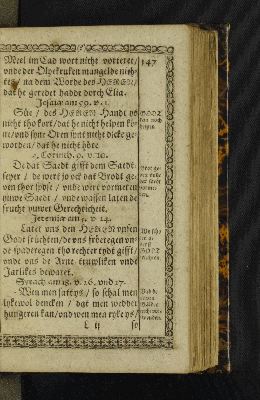 Meel im Cad wort nicht vorteret/
vnde der Olyekruken mangelde nich-
tes/ na dem Worde des HEREN/
dat he geredet hadde dorch Elia.
147
Jesaiæ am 59. v. 1.
Süe/ des HEREN Handt ys
nicht tho kort/ dat he nicht helpen kö-
ne/ vnd syne Oren synt nicht dicke ge-
worden/ dat he nicht höre.
2. Corinth. 9. v. 10.
De dat Saedt gifft dem Saedt-
seyer/ de wert jo ock dat Brodt ge-
uen thor spyse/ vnde wert vormeren
yuwe Saedt/ vnde wassen laten de
frucht yuwer Gerechticheit.
Jeremiæ am 5. v. 24.
Latet vns den HEREN vnsen
Godt früchten/ de vns fröregen vn-
de spaderegen tho rechter tydt gifft/
vnde vns de Arne truwliken vnde
Jarlikes bewaret.
Syrach am 18. v. 26. vnd 27.
Wen men satt ys/ so schal men
lykewol dencken/ dat men wedder
hungeren kan/ vnd wen men ryke ys/
so